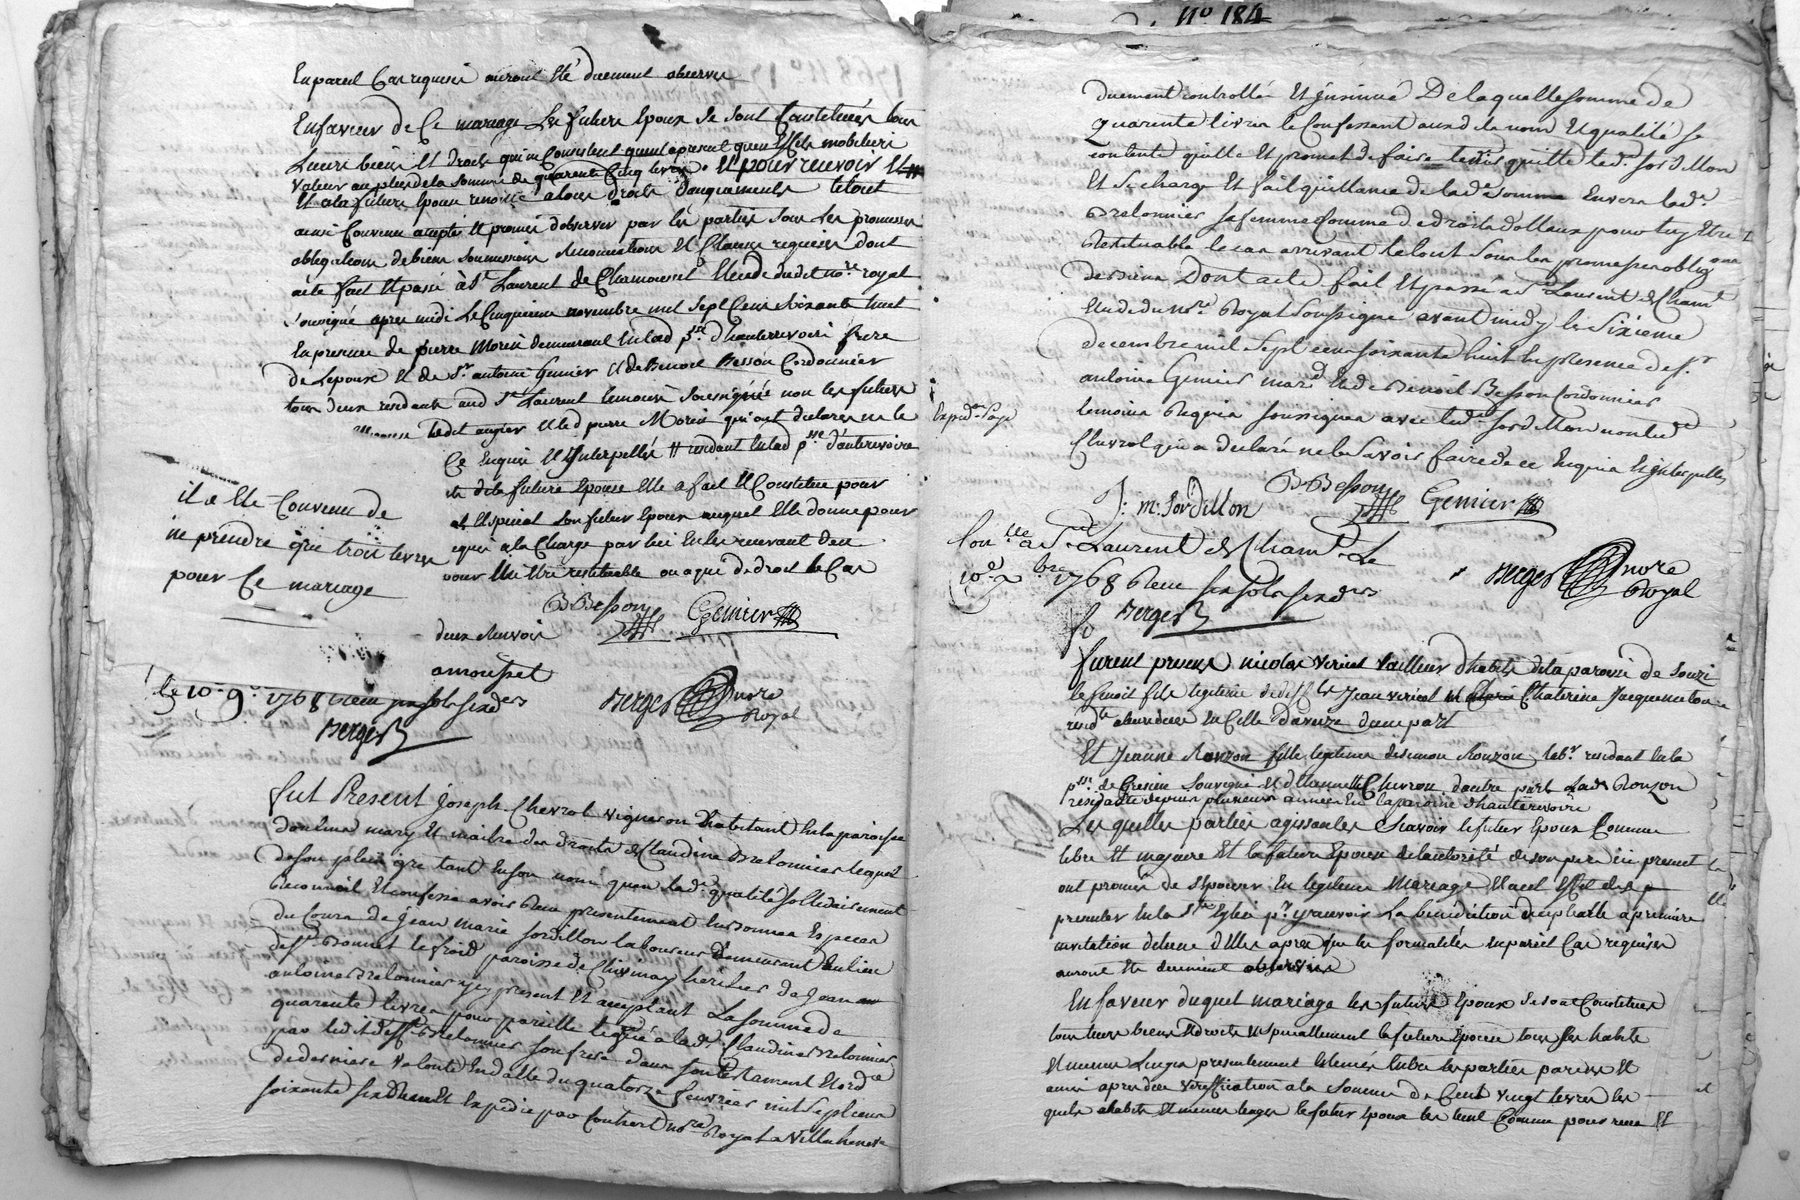 En pareil Cas requis auront été duement observé
En faveur de Ce mariage Les futurs Epoux Se Sont Constitués tous
Leurs biens Et droits qui ne Consistent quant apresent qu'en Effets mobiliers
valeur au plus de la Somme de quarente Cinq livres Et pour recevoir
Et a la future Epouse renoncé a tous droits d'augments le tout
ainsi Convenu accepté Et promis d'observer par les parties Sous Les promesses
obligations de biens Soumissions Renonciations Et Clauses requises dont
acte fait Et passé à St Laurent de Chamousset Etude dudit nore royal
Soussigné apres midi Le Cinquieme novembre mil Sept Cent Soixante huit
En presence de pierre Morin demeurant En lad psse d'hauterivoire frere
de Lepoux Et de Sr antoine Genier Et de Benoit Besson Cordonnier
tous deux residants aud St Laurent temoins Soussignés non les futurs
ledit Et led pierre Morin qui ont declaré ne le
Ce Enquis Et Interpellés residant En lad psse d'auterivoire
la dite future Epouse Elle a fait Et Constitué pour
Et Special Son futur Epoux auquel Elle donne pouvr
a la Charge par lui En les recevant d'en
pour lui Etre restituable ou a qui de droit le Cas
il a Eté Convenu de
ne prendre que trois livres
pour Ce mariage
BBesson Genier
deux Renvois
amousset
le 10e 9e 1768 Receu
Berger
Berger nore
Royal
fut Present Joseph Chevrol vigneron habitant En la paroisse
mary Et maitre des droits de Claudine Brelonnier lequel
de Son plein gré tant En Son nom qu'en lade qualité Sollidairement
Reconnoit Et confesse avoir Receu presentement En bonnes Especes
du Cours de Jean Marie Jordillon laboureur demeurant En lieu
de St Bonnet le froid paroisse de Chivinay heritier de Jean
antoine Brelonnier icy present Et acceptant La Somme de
quarente livres pour pareille leguée a lade Claudine Brelonnier
par ledit deft Brelonnier Son frere dans Son testament Et ordce
de derniere volonté En datte du quatorze fevrier mil Sept cent
Soixante Six Receu Et Expedié par Couhert nore Royal a Villecheneve
No 184
Duement controllé Et insinué De laquelle Somme de
quarente livres le Confessant aud de nom Et qualité Se
contente quitte Et promet de faire tenir quitte led Jordillon
Et Se charge Et fait quittance de lade Somme Envers lade
Brelonnier Sa femme Comme de droits dottaux pour luy Etre
Restituable le cas arrivant le tout Sous les promesses obligons
de biens Dont acte fait Et passé a St Laurent de Chamt
Etude du nore Royal Soussigné avant midy le Sixieme
decembre mil Sept cens Soixante huit En presence de Sr
antoine Genier mard Et de Benoit Besson Cordonnier
temoins Requis Soussignés avec led Jordillon non led
Chevrol qui a declaré ne le Savoir faire de ce Enquis Et interpellé
J: m: Jordillon BBesson Genier
Conlle a St Laurent de Chamt Le
10e Xbre 1768 Receu six sols six ders
Berger
Berger nore
Royal
furent presens nicolas vericel tailleur d'habits de la paroisse de Souzi
fils legitime de deft Jean vericel Et Chaterine Jacquemetton
residt En Celle d'aveize d'une part
Et Jeanne Ronzon fille legitime de Simon Ronzon labr residant En la
psse de Gresieu Souvigné Et d'Ennette Chevron d'autre part Lade Ronzon
residante depuis plusieurs années En la paroisse d'hauterivoire
Lesquelles parties agissantes Scavoir le futur Epoux Comme
libre Et majeur Et la future Epouse de l'autorité de Son pere ici present
ont promis de S'epouser En legitime Mariage Et a cet Effet de Se
presenter En la Ste Eglise pr y recevoir La benediction nuptialle a premiere
invitation de l'une d'Elles apres que les formalités En pareil Cas requises
auront Eté duement observées
En faveur duquel mariage les futurs Epoux Se Sont Constitués
tous leurs biens Et droits Et Speciallement la future Epouse tous Ses habits
Et menus Linges presentement Estimés Entre les parties parens Et
amis apres due verification a la Somme de Cent vingt livres les
quels habits Et menus linges le futur Epoux les tient Comme pour receu Et